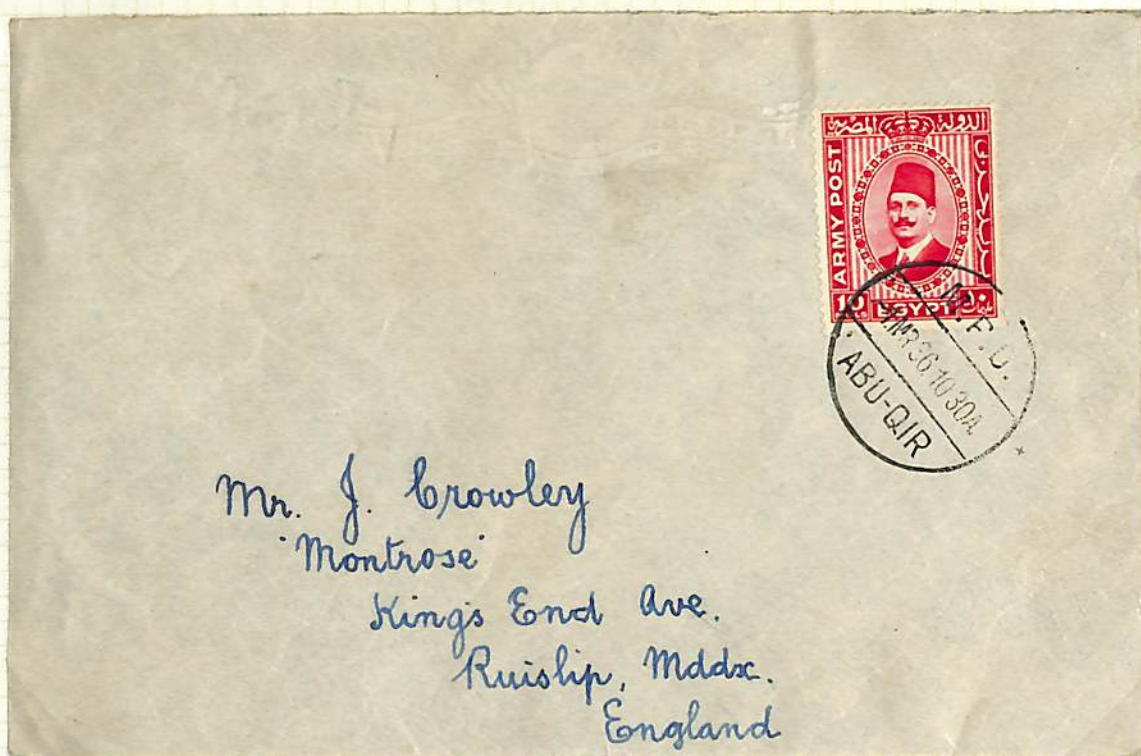 الدولة المصرية
ARMY POST
10
EGYPT
M.P.O.
MR 36 10 30A
ABU-QIR
Mr. J. Crowley
'Montrose'
King's End Ave.
Ruislip, Mddx.
England